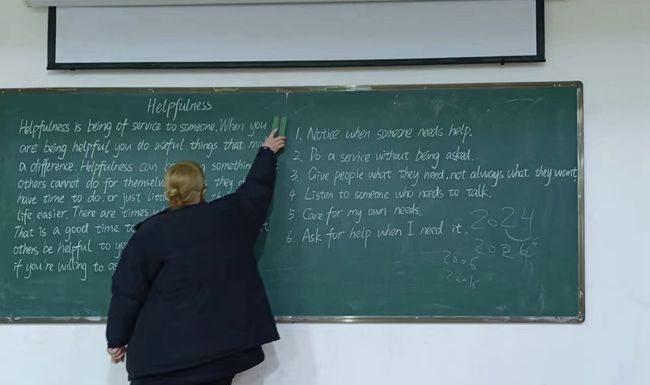 Helpfulness
Helpfulness is being of service to someone. When you
are being helpful you do useful things that m
a difference. Helpfulness can something
others cannot do for themsel they
have time to do, or just littl
life easier. There are times
That is a good time to
others be helpful to yo
if you're willing to as
1. Notice when someone needs help.
2. Do a service without being asked.
3 Give people what they need, not always what they want.
4 Listen to someone who needs to talk.
5 Care for my own needs.
6. Ask for help when I need it.
2024